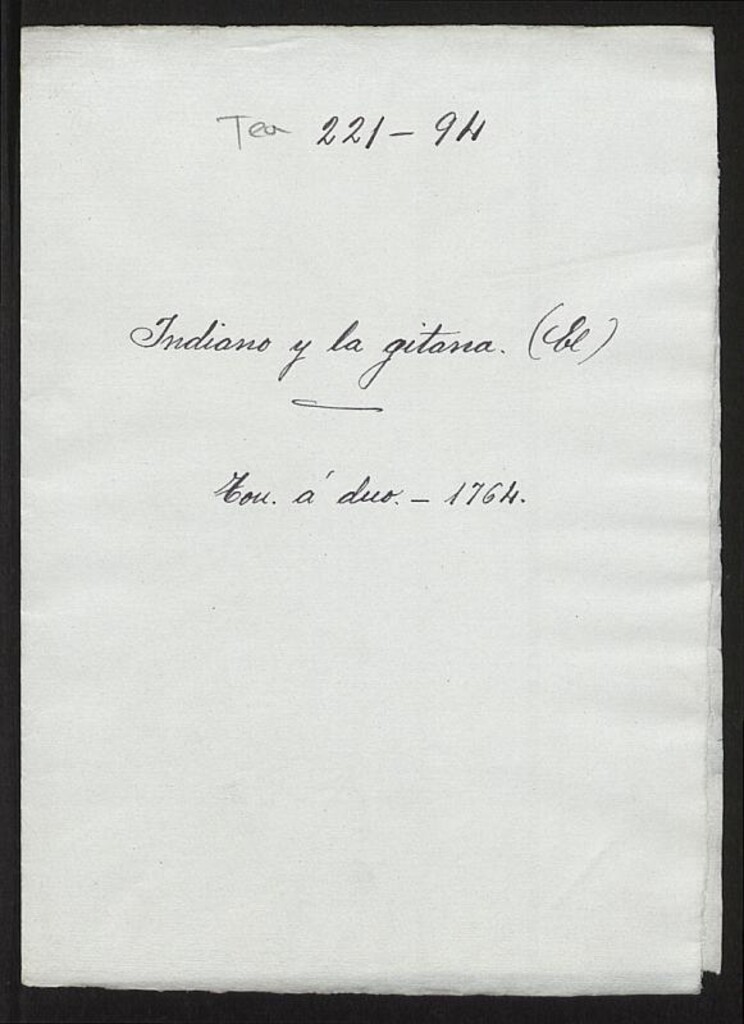 Tea 221-94
Indiano y la gitana. (El)
Ton. á duo. - 1764.